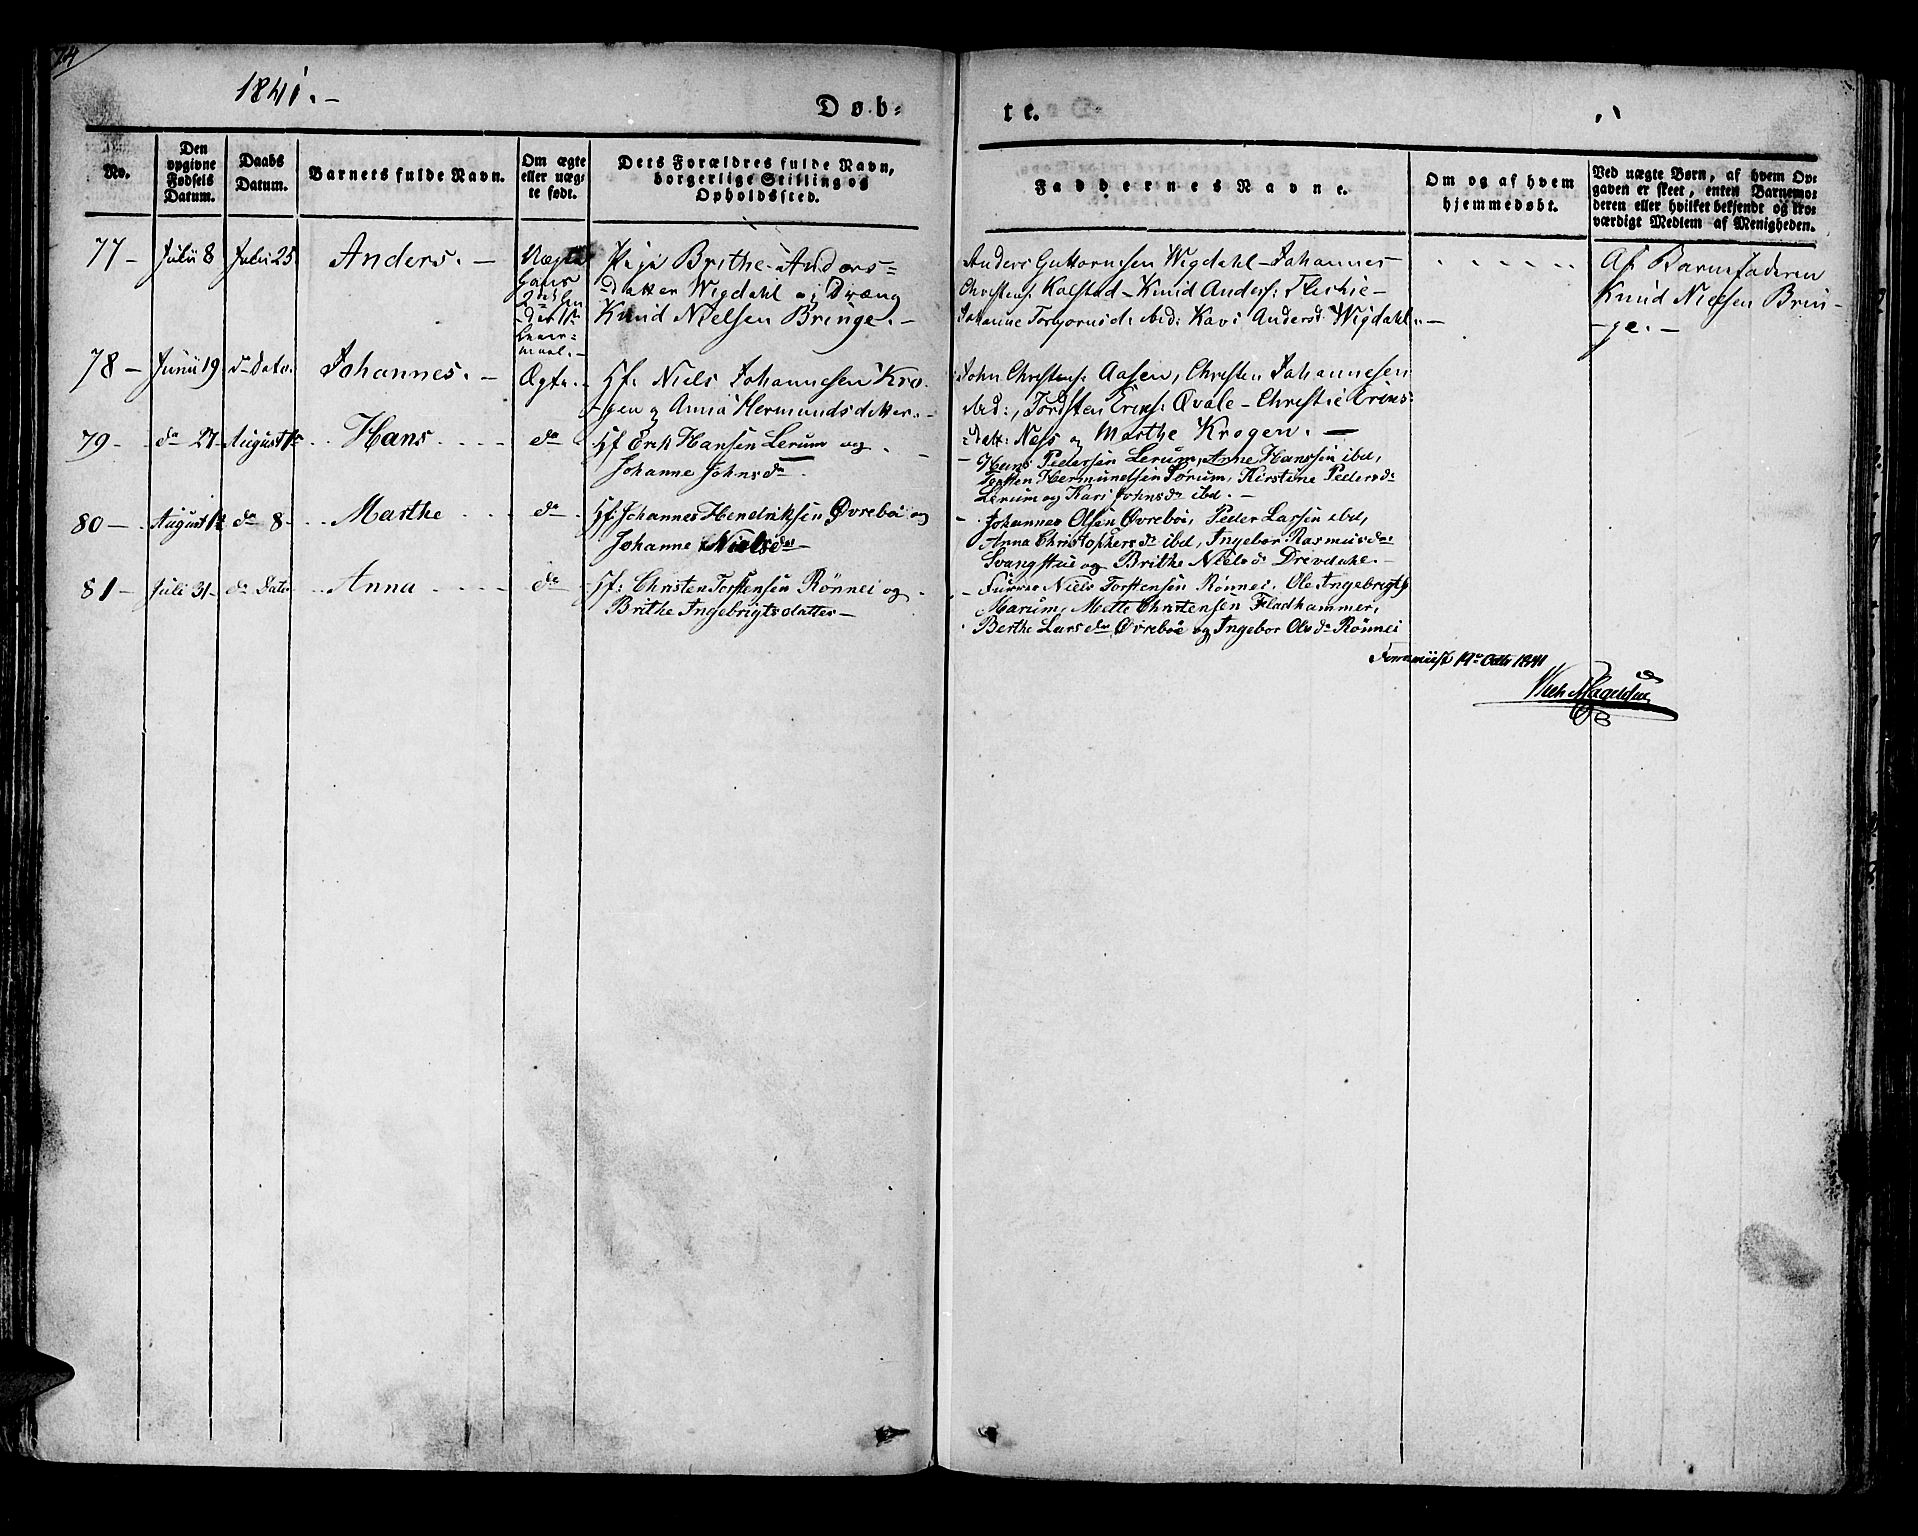 24
1841.-
Døb-
te.
No.
Den opgivne Fødsels Datum.
Daabs Datum.
Barnets fulde Navn.
Om ægte eller uægte født.
Dets Forældres fulde Navn, borgerlige Stilling og Opholdssted.
Faddernes Navne.
Om og af hvem hjemmedøbt.
Ved uægte Børn, af hvem Opgaven er skeet, enten Barnemoderen eller hvilket bekjendt og troværdigt Medlem af Menigheden.
77 - Julii 8 Julii 25 Anders. - Uægte
Hans 2det hendes 1ste Leiermaal.-
Pige Brithe Anders-
datter Wigdahl og Dreng
Knud Nielsen Bringe.-
Anders Guttormsen Wigdahl - Johannes
Christens: Kalstad - Knud Anders:
Johanne Torgersd: ibid: Kari Andersd: Wigdahl. -
Af Barnefaderen
Knud Nielsen Brin-
-ge. -
78 - Junii 19 do Dato. Johannes. - Ægte.
Hf: Niels Johannesen Kro-
-gen og Anna Hermundsdatter. -
John Christens: Aasen, Christen Johannesen
ibid:, Torsten Eriks: Qvale - Christie Eriks-
datt: Næs og Marthe Krogen. -
79 - do 27 August 1ste Hans do
Hf Erik Hansen Lerum og
Johanne Johnsdr
Hans Pedersen Lerum, Anne Hanssen ibd,
Torsten Hermundsen Sorum, Kirstine Pedersdr
Lerum og Kari Johnsdr ibd. -
80 - August 1ste do 8 - Marthe do
Hf. Johannes Hendriksen Øvreboe og
Johanne Nielsdr
Johannes Olsen Øvreboe, Peder Larsen ibd,
Anna Christophersdr ibd, Ingebor Rasmusdr
Svangstue og Brithe Nielsdr Drevdahl. -
81 - Juli 31 - do Dato Anna do
Hf: Christen Torstensen Rönnei og
Brithe Ingebrigtsdatter -
Niels Torstensen Rönnei, Ole Ingebrigts
Marum, Mette Christensen Fladhammer,
Berthe Larsdr Øvreboe og Ingebor Olsdr Rönnei
19de Octbr 1841